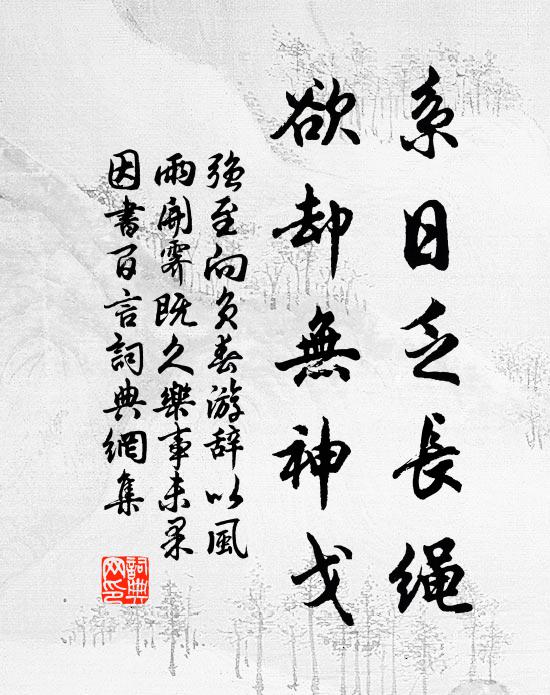 系日乏长绳
欲却無神戈
强至向负春游辞以風
雨開霁既久樂事未果
因書百言詞典網集
詞典
网印